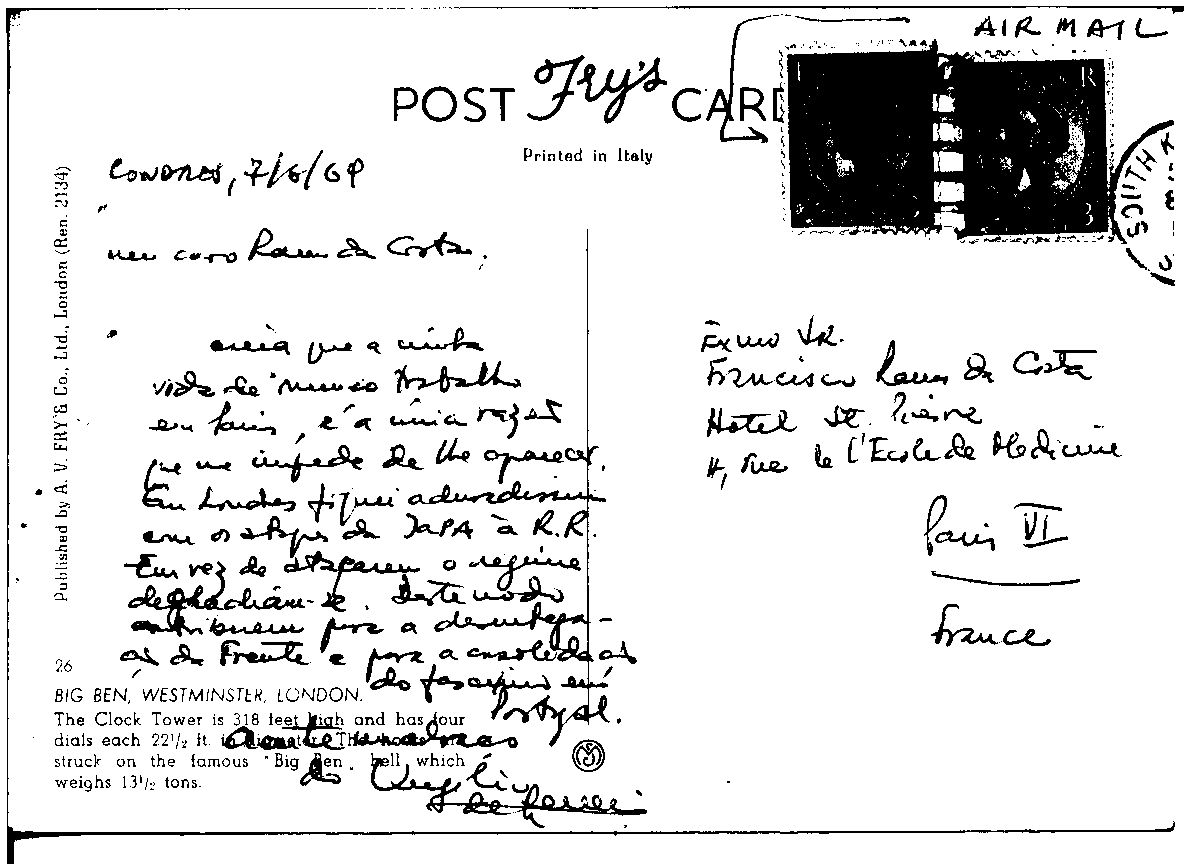 AIR MAIL
POST Fry's CARD
Printed in Italy
SOUTH K
Published by A. V. FRY & Co., Ltd., London (Ren. 2134)
Londres, 7/6/69
meu caro Ramos da Costa,
creia que a minha
vida de muito trabalho
em Paris, é a única razão
que me impede de lhe aparecer.
Em Londres fiquei
com os ataques da JAPPA à R.R.
Em vez de atacarem o regime
Deste modo
contribuem para a desintegra-
ção da Frente e para a consolidação
do fascismo em
Portugal.
Aceite um abraço
do
26
BIG BEN, WESTMINSTER, LONDON.
The Clock Tower is 318 feet high and has four
dials each 22 1/2 ft. in diameter. The
struck on the famous "Big Ben" bell which
weighs 13 1/2 tons.
Exmo Sr.
Francisco Ramos da Costa
Hotel St. Pierre
4, rue de l'Ecole de Medicine
Paris VI
France